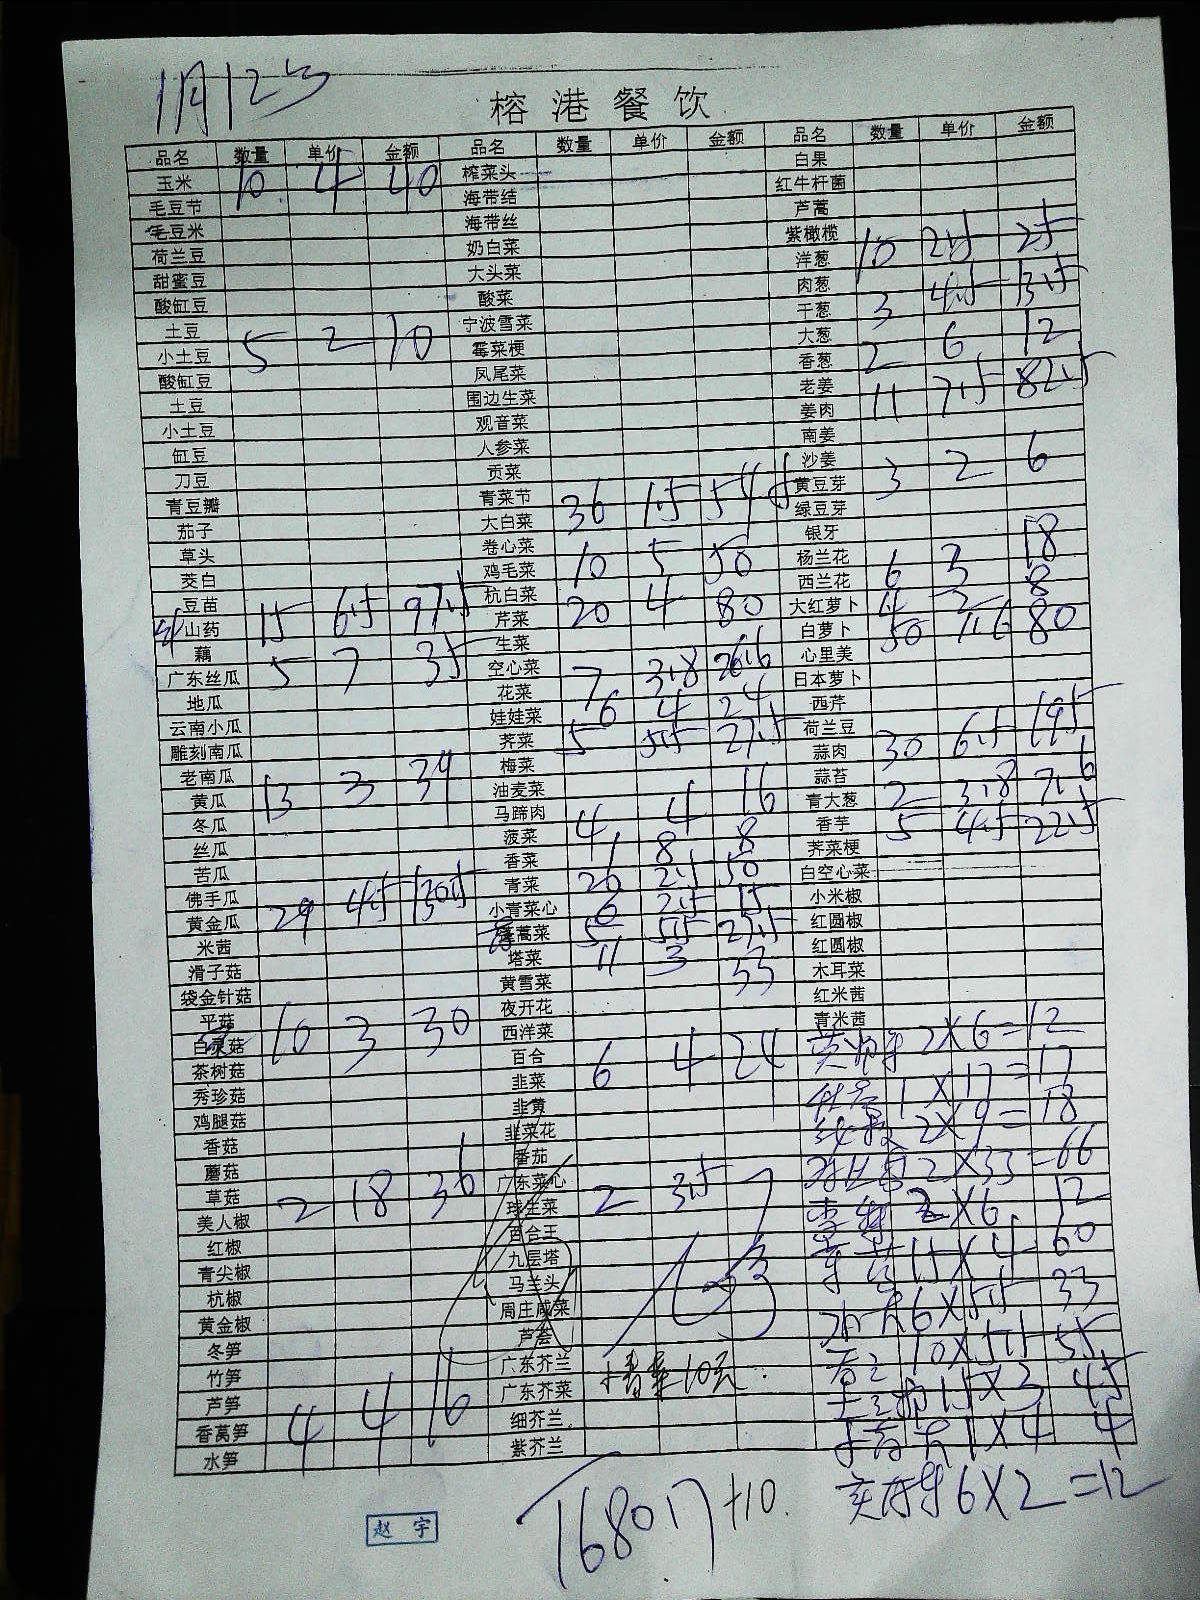 1月12号
榕港餐饮
品名 数量 单价 金额 品名 数量 单价 金额 品名 数量 单价 金额
玉米 10 4 40 榨菜头 白果
毛豆节 海带结 红牛杆菌
毛豆米 海带丝 芦蒿
荷兰豆 奶白菜 紫橄榄
甜蜜豆 大头菜 洋葱 10 2.5 25
酸缸豆 酸菜 肉葱
土豆 宁波雪菜 干葱 3 4.5 13.5
小土豆 5 2 10 霉菜梗 大葱
酸缸豆 凤尾菜 香葱 2 6 12
土豆 围边生菜 老姜
小土豆 观音菜 姜肉 11 7.5 82.5
缸豆 人参菜 南姜
刀豆 贡菜 沙姜
青豆瓣 青菜节 黄豆芽 3 2 6
茄子 大白菜 36 1.5 54 绿豆芽
草头 卷心菜 银牙
茭白 鸡毛菜 10 5 50 杨兰花
豆苗 杭白菜 西兰花 6 3 18
山药 15 6.5 97.5 芹菜 20 4 80 大红萝卜 4 2 8
藕 生菜 白萝卜 50 1.6 80
广东丝瓜 5 7 35 空心菜 心里美
地瓜 花菜 7 3.8 26.6 日本萝卜
云南小瓜 娃娃菜 6 4 24 西芹
雕刻南瓜 荠菜 5 5.5 27.5 荷兰豆
老南瓜 梅菜 蒜肉 30 6.5 195
黄瓜 13 3 39 油麦菜 蒜苔
冬瓜 马蹄肉 4 4 16 青大葱 2 3.8 7.6
丝瓜 菠菜 香芋 5 4.5 22.5
苦瓜 香菜 1 8 8 荠菜梗
佛手瓜 青菜 20 2.5 50 白空心菜
黄金瓜 29 4.5 130.5 小青菜心 6 2.5 15 小米椒
米茜 蒿菜 5 5.5 27.5 红圆椒
滑子菇 塔菜 11 3 33 红圆椒
袋金针菇 黄雪菜 木耳菜
平菇 夜开花 红米茜
白灵菇 10 3 30 西洋菜 青米茜
茶树菇 百合 6 4 24 2X6=12
秀珍菇 韭菜 1X17=17
鸡腿菇 韭黄 2X9=18
香菇 韭菜花 2X33=66
蘑菇 番茄 X6 12
草菇 2 18 36 广东菜心 15X4 60
美人椒 球生菜 2 3.5 7 6X5.5 33
红椒 百合王 10X5.5 55
青尖椒 九层塔 15X3 45
杭椒 马兰头 1X4 4
黄金椒 周庄咸菜
冬笋 芦荟
竹笋 广东芥兰
芦笋 广东芥菜
香莴笋 4 4 16 细芥兰
水笋 紫芥兰
63
6X2=12
1680.17+10
赵宇